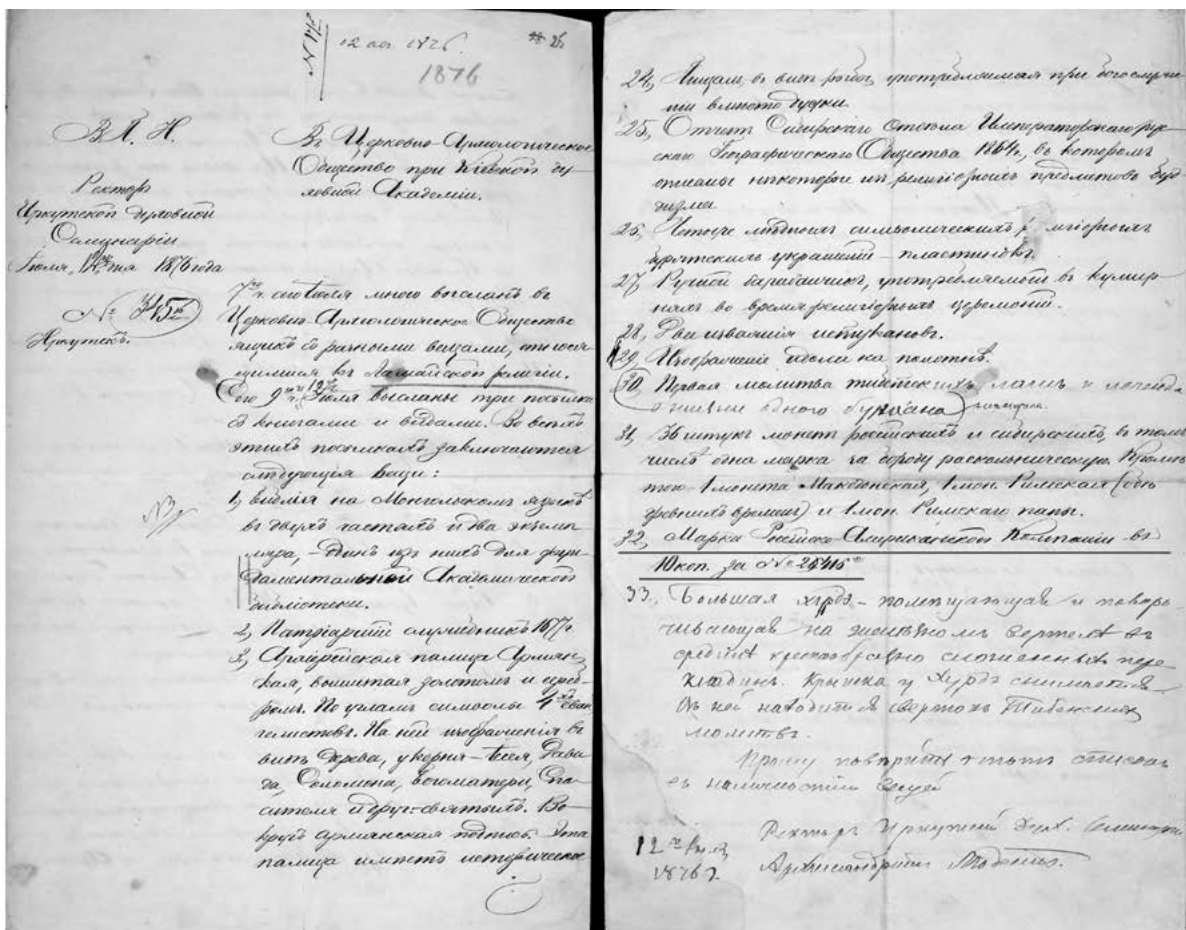 N 147
12 авг. 1876.
1876
В. А. Н.
Ректоръ
Иркутской духовной
Семинаріи
Іюля, 12 дня 1876 года
№ 345
Иркутскъ.
Въ Церковно-Археологическое
Общество при Кіевской ду-
ховной Академіи.
7го сего Іюля мною высланъ въ
Церковно-Археологическое Общество
ящикъ съ разными вещами, относя-
щимися къ Ламайской религіи.
Сего 9го и 12го Іюля высланы три посылки
съ книгами и вещами. Во всехъ
этихъ посылкахъ заключаются
следующія вещи:
1, библія на Монгольскомъ языкѣ
въ двухъ частяхъ и два экзем-
пляра, – одинъ изъ нихъ для фун-
даментальной Академической
библіотеки.
2, Патріаршій служебникъ 1677 г.
3, Архіерейская палица Армян-
ская, вышитая золотомъ и сереб-
ромъ. По угламъ символы 4хъ Еван-
гелистовъ. На ней изображенія въ
видѣ дерева, у корня – Іессея, Дави-
да, Соломона, Богоматери, Спа-
сителя и друг. святыхъ. Во-
кругъ армянская подпись. Эта
палица имѣетъ историческое
24, Пищаль, въ видѣ рога, употребляемая при богослуже-
ніи вмѣсто дудки.
25, Отчетъ Сибирскаго Отдѣла Императорскаго рус-
скаго Географическаго Общества 1864 г., въ которомъ
описаны некоторые изъ религіозныхъ предметовъ буд-
дизма
26, Четыре мѣдныхъ символическихъ религіозныхъ
бурятскихъ украшеній – пластинокъ.
27, Ручной барабанчикъ, употребляемый въ кумир-
няхъ во время религіозныхъ церемоній.
28, Два изваянія истукановъ.
29, Изображеніе идола на полотнѣ.
30, Первая молитва тибетскихъ ламъ и легенда
о жизни одного бурхана
31, 36 штукъ монетъ россійскихъ и сибирскихъ, въ томъ
числѣ одна марка за бороду раскольническую. Кромѣ
того 1 монета Македонская, 1 мон. Римская (обѣ
древнихъ временъ) и 1 мон. Римскаго папы.
32, Марка Россійско-Американской Компаніи въ
10 коп. за № 25415
33. Большая хурдэ – помещающая и повора-
чивающая на железномъ вертеле въ
средине крестообразно сложенныхъ пере-
кладинъ. Крышка у хурдэ снимается
Въ ней находится свертокъ Тибетскихъ
молитвъ.
Прошу поверить этотъ списокъ
съ наличностію вещей
Ректоръ Иркутской Дух. Семинаріи
Архимандритъ Модестъ.
12го Іюля
1876 г.